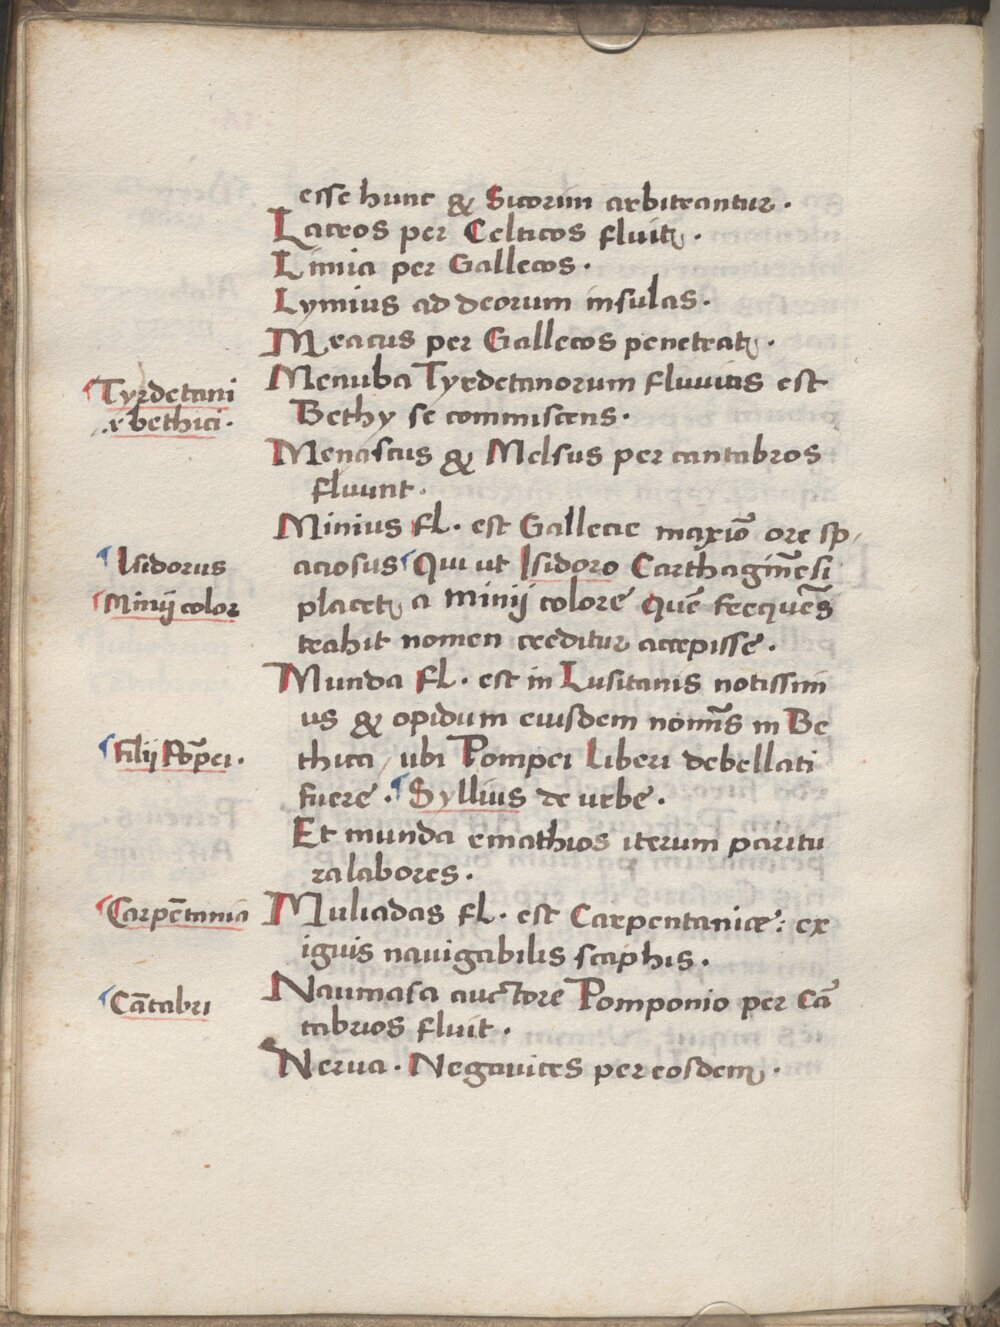 esse hunc & Sicorim arbitrantur.
Laceos per Celticos fluit.
Limia per Gallecos.
Lymius ad deorum insulas.
Mearus per Gallecos penetrat.
Menuba Tyrdetanorum fluvius est
Tyrdetani
Bethy se commiscens.
& bethici.
Menascus & Melsus per cantabros
fluunt.
Minius fl. est Gallecie maxiō ore sp,
Isidorus
aciosus Qui ut Isidoro Carthagin̄esi
Minij color
placet a minij colore quē frequēs
trahit nomen creditur accepisse.
Munda fl. est in Lusitanis notissim
us & opidum eiusdem nomīs in Be
Filij Pōpei.
thica, ubi Pompei Liberi debellati
fuere. Syllius de urbe.
Et munda emathios iterum paritu
ra labores.
Carpētania
Muliadas fl. est Carpentanice: ex
iguis navigabilis scaphis.
Cātabri
Naumasa auctore Pomponio per Cā
tabrios fluit.
Nerua. Negauices per eosdem.